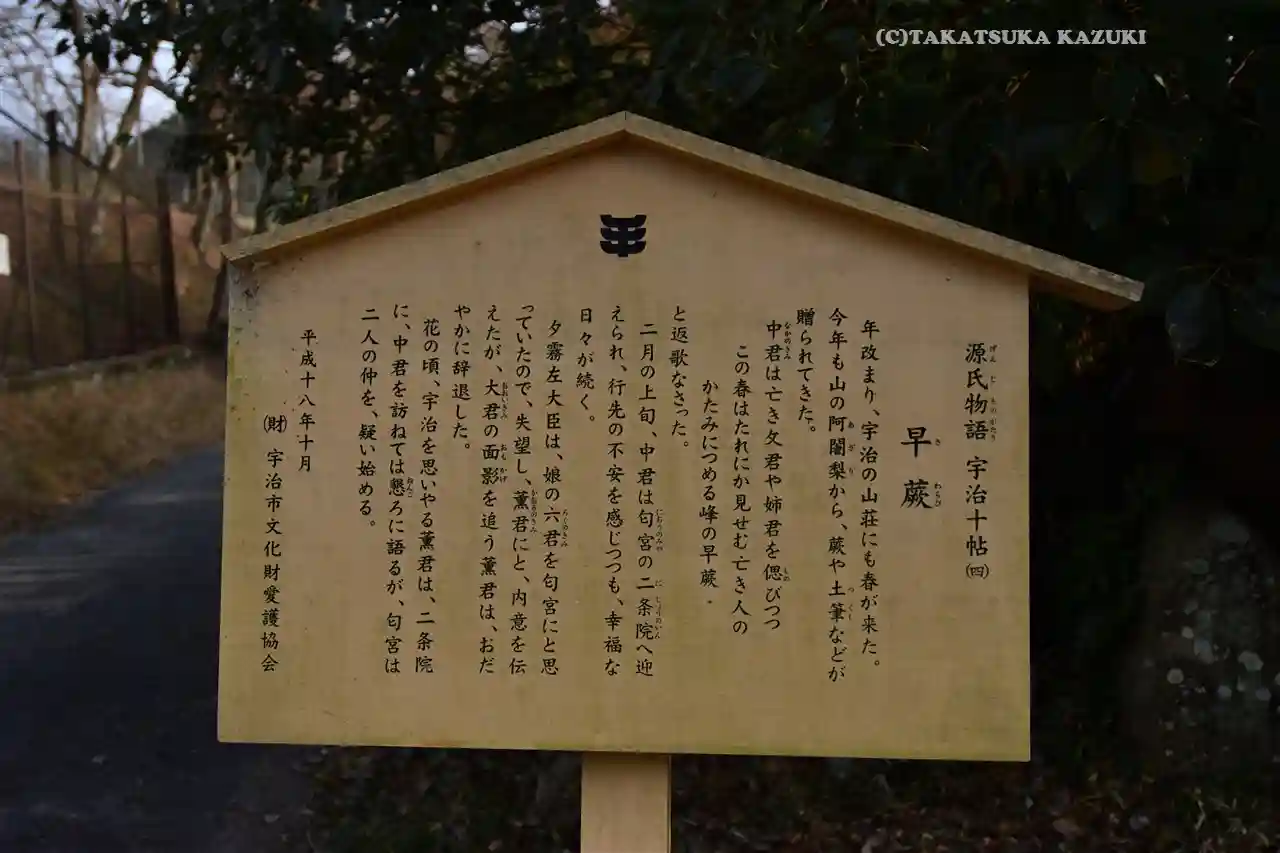 (C)TAKATSUKA KAZUKI
源氏物語 宇治十帖 ㈣
早蕨
年改まり、宇治の山荘にも春が来た。
今年も山の阿闍梨から、蕨や土筆などが
贈られてきた。
中君は亡き父君や姉君を偲びつつ
この春はたれにか見せむ亡き人の
かたみにつめる峰の早蕨
と返歌なさった。
二月の上旬、中君は匂宮の二条院へ迎
えられ、行先の不安を感じつつも、幸福な
日々が続く。
夕霧左大臣は、娘の六君を匂宮にと思
っていたので、失望し、薫君にと、内意を伝
えたが、大君の面影を追う薫君は、おだ
やかに辞退した。
花の頃、宇治を思いやる薫君は、二条院
に、中君を訪ねては懇ろに語るが、匂宮は
二人の仲を、疑い始める。
平成十八年十月
㈶ 宇治市文化財愛護協会